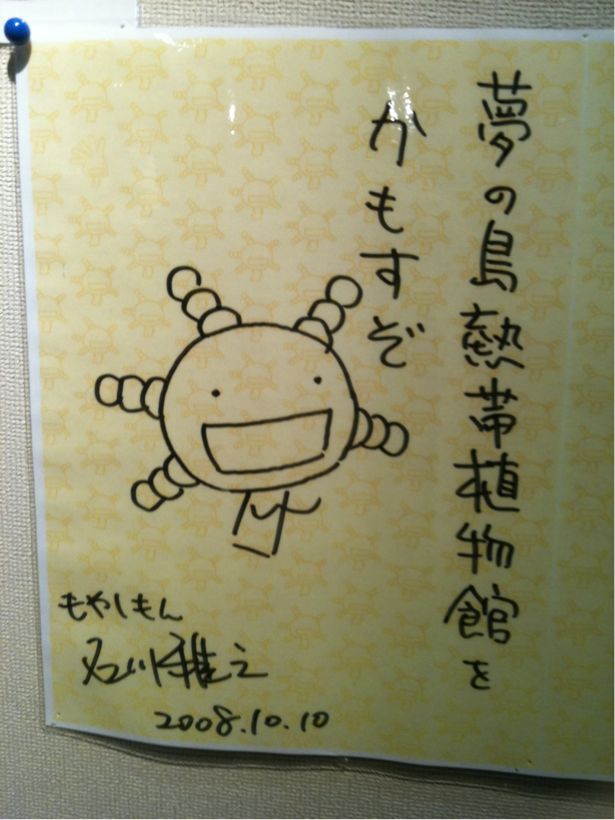 夢の島熱帯植物館を
かもすぞ
もやしもん
石川雅之
2008.10.10